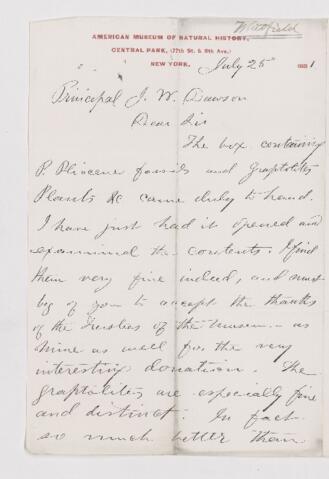 Whitfield
AMERICAN MUSEUM OF NATURAL HISTORY,
CENTRAL PARK, (77th St. & 8th Ave.)
NEW YORK.
July 25 1881
Principal J. W. Dawson
Dear Sir
The box containing
P. Pliocene fossils and Graptolites
Plants &c came duly to hand.
I have just had it opened and
examined the contents. I find
them very fine indeed, and must
beg of you to accept the thanks
of the Trustees of the Museum as
mine as well for the very
interesting donation. The
graptolites are especially fine
and distinct. In fact
so much better than